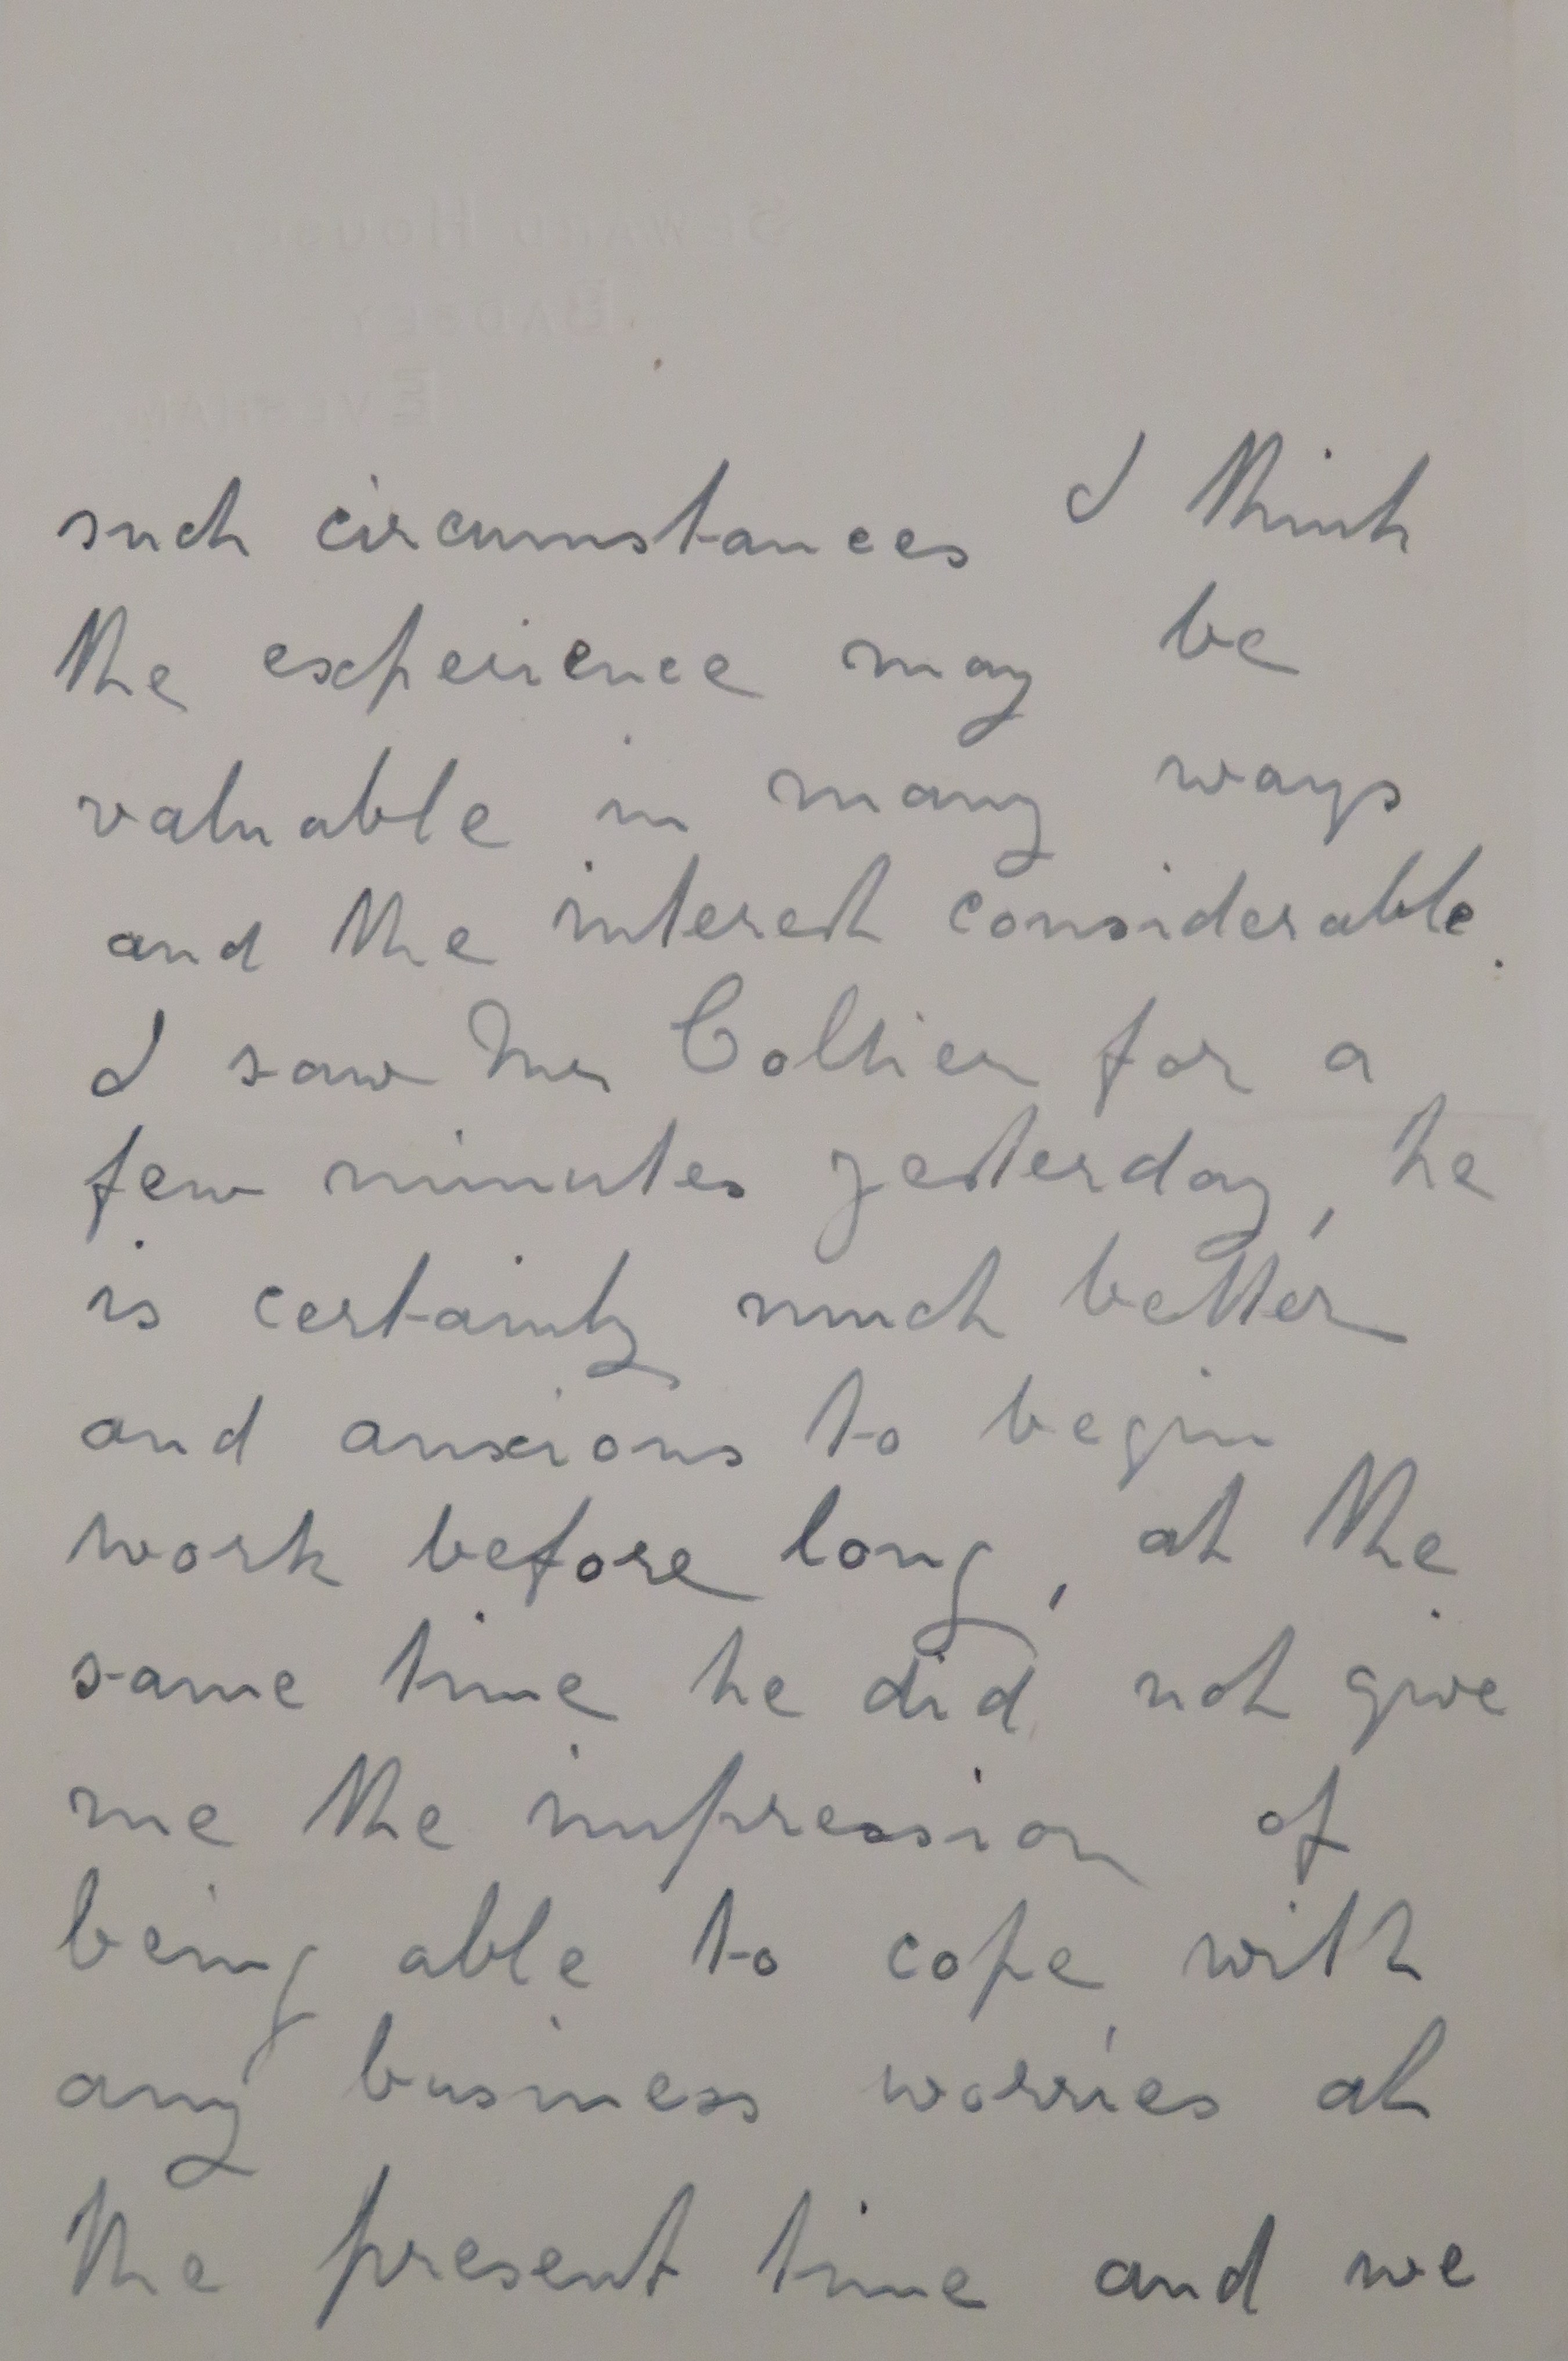 SEWARD HOUSE,
BADSEY,
EVESHAM.
such circumstances I think
the experience may be
valuable in many ways
and the interest considerable.
I saw Mr Collier for a
few minutes yesterday, he
is certainly much better
and anxious to begin
work before long, at the
same time he did not give
me the impression of
being able to cope with
any business worries at
the present time and we